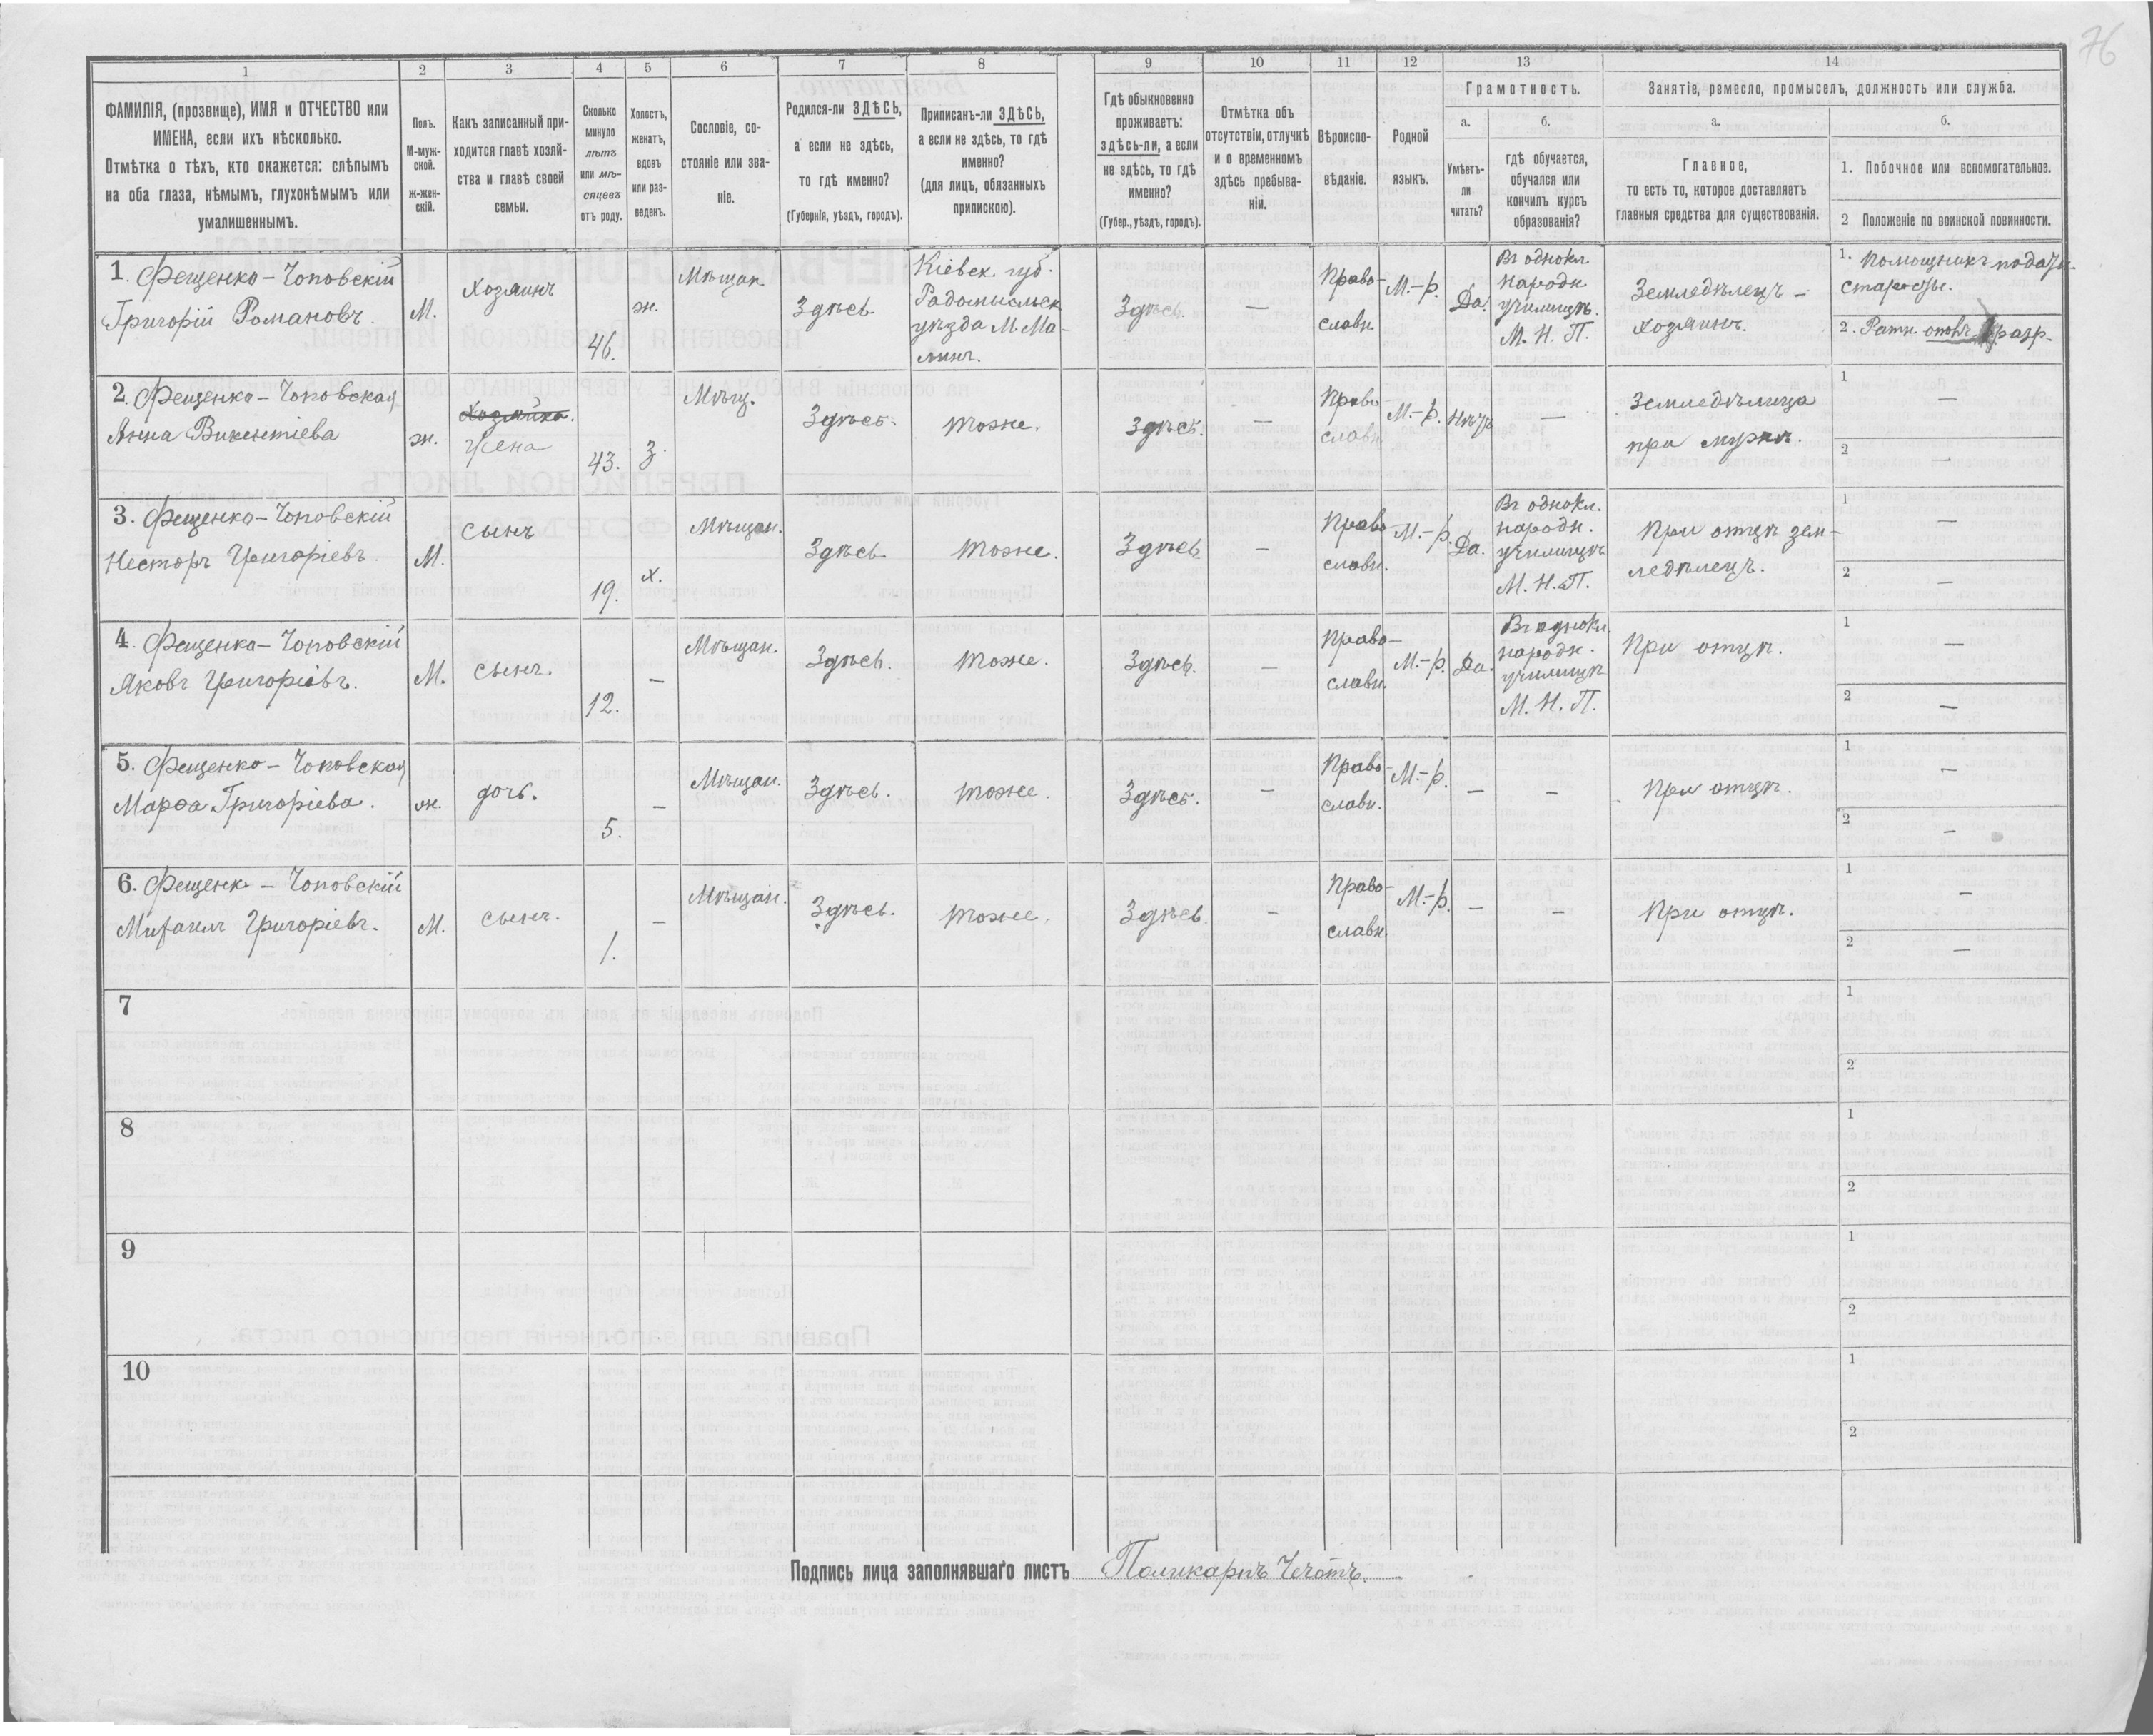 76
1
2
3
4
5
6
7
8
9
10
11
12
13
14
ФАМИЛІЯ, (прозвище), ИМЯ и ОТЧЕСТВО или
ИМЕНА, если ихъ нѣсколько.
Отмѣтка о тѣхъ, кто окажется: слѣпымъ
на оба глаза, нѣмымъ, глухонѣмымъ или
умалишеннымъ.
Полъ.
М-муж-
ской.
ж-жен-
скій.
Какъ записанный при-
ходится главѣ хозяй-
ства и главѣ своей
семьи.
Сколько
минуло
лѣтъ
или мѣ-
сяцевъ
отъ роду.
Холостъ,
женатъ,
вдовъ
или раз-
веденъ.
Сословіе, со-
стояніе или зва-
ніе.
Родился-ли ЗДѢСЬ,
а если не здѣсь,
то гдѣ именно?
(Губернія, уѣздъ, городъ).
Приписанъ-ли ЗДѢСЬ,
а если не здѣсь, то гдѣ
именно?
(для лицъ, обязанныхъ
припискою).
Гдѣ обыкновенно
проживаетъ:
здѣсь-ли, а если
не здѣсь, то гдѣ
именно?
(Губер., уѣздъ, городъ).
Отмѣтка объ
отсутствіи, отлучкѣ
и о временномъ
здѣсь пребыва-
ніи.
Вѣроиспо-
вѣданіе.
Родной
языкъ.
Грамотность.
а.
Умѣетъ-
ли
читать?
б.
гдѣ обучается,
обучался или
кончилъ курсъ
образованія?
Занятіе, ремесло, промыселъ, должность или служба.
а.
Главное,
то есть то, которое доставляетъ
главныя средства для существованія.
б.
1. Побочное или вспомогательное.
2 Положеніе по воинской повинности.
1. Фещенко-Чоповскій
Григорій Романовъ.
М.
Хозяинъ
46.
ж.
Мѣщан.
Здѣсь
Кіевск. губ.
Радомысльск
уѣзда М. Ма-
линъ.
Здѣсь.
—
Право-
славн.
М.-р.
Да.
Въ однокл
народн
училищѣ.
М. Н. П.
Земледѣлецъ -
хозяинъ.
1. Помощникъ податн.
старосты.
2. Ратн. опол. разр.
2. Фещенко-Чоповская
Анна Викентіева
ж.
Хозяйка.
Жена
43.
З.
Мѣщ.
Здѣсь.
Тоже.
Здѣсь.
—
Право
славн
М.-р.
Нѣтъ
—
Земледѣлица
при мужѣ.
1
—
2
—
3. Фещенко-Чоповскій
Несторъ Григоріевъ.
М.
Сынъ
19.
х.
Мѣщан.
Здѣсь.
Тоже.
Здѣсь
—
Право
славн.
М.-р.
Да.
Въ однокл.
народн.
училищѣ
М. Н. П.
При отцѣ зем-
ледѣлецъ.
1
—
2
—
4. Фещенко-Чоповскій
Яковъ Григоріевъ.
М.
Сынъ.
12.
—
Мѣщан.
Здѣсь.
Тоже.
Здѣсь.
—
Право-
славн.
М.-р.
Да.
Въ однокл.
народн.
училищѣ
М. Н. П.
При отцѣ.
1
—
2
—
5. Фещенко-Чоповская
Марѳа Григоріева.
ж.
дочь.
5.
—
Мѣщан.
Здѣсь.
Тоже.
Здѣсь.
—
Право-
славн.
М.-р.
—
—
При отцѣ.
1
—
2
—
6. Фещенк-Чоповскій
Михаилъ Григоріевъ.
М.
Сынъ.
1.
—
Мѣщан.
Здѣсь.
Тоже.
Здѣсь
—
Право-
славн
М.-р.
—
—
При отцѣ.
1
—
2
—
7
1
2
8
1
2
9
1
2
10
1
2
Подпись лица заполнявшаго листъ Поликарпъ Чечотъ.